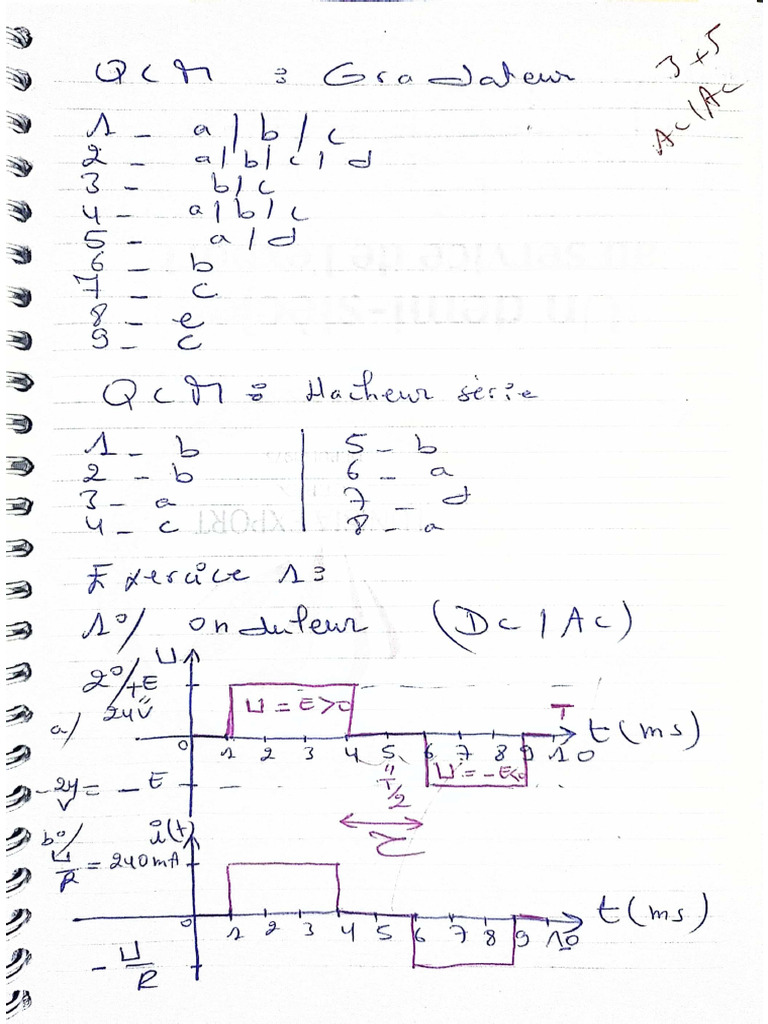 QCM : Gradateur
3+5
AC/AC
1 - a/b/c
2 - a/b/c/d
3 - b/c
4 - a/b/c
5 - a/d
6 - b
7 - c
8 - e
9 - c
QCM : Hacheur série
1 - b
2 - b
3 - a
4 - c
5 - b
6 - a
7 - d
8 - a
Exercice 1 :
1°/ onduleur (DC/AC)
2°/
a/
U
+E
24V
U = E>0
T
t(ms)
0 1 2 3 4 5 6 7 8 9 10
T/2
U = -E<0
-24V = -E
τ
b°/
i(t)
U/R = 240mA
t(ms)
0 1 2 3 4 5 6 7 8 9 10
-U/R